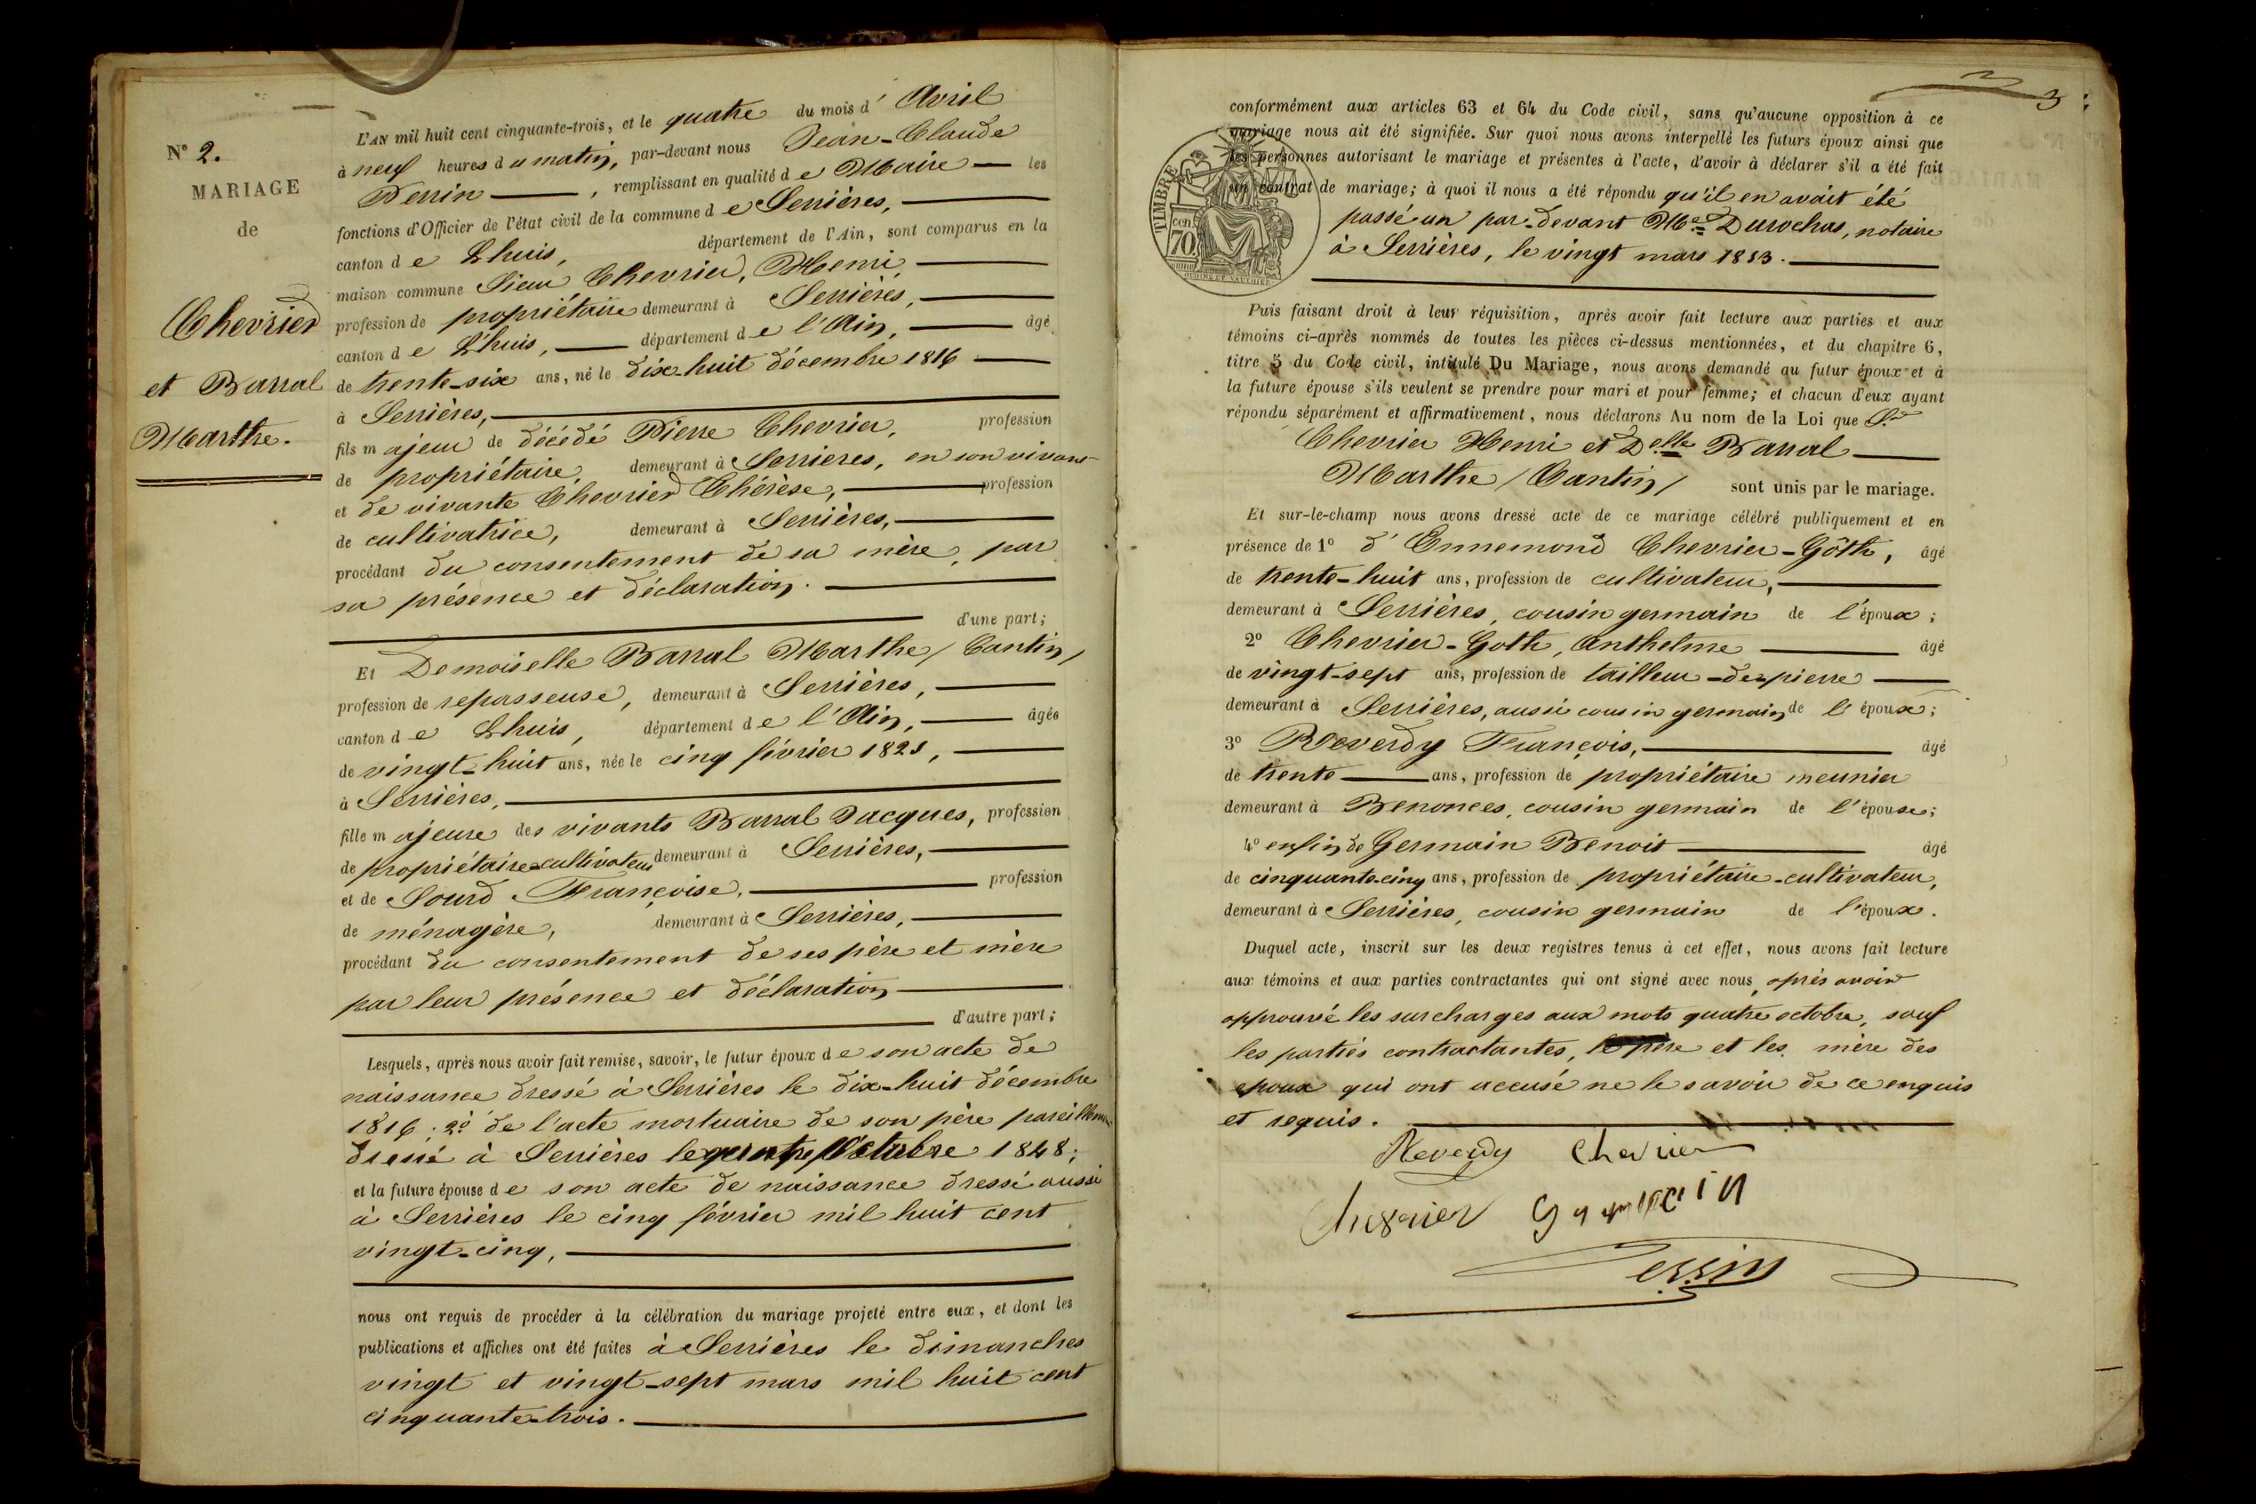 N° 2.
MARIAGE
de
Chevrier
et Barral
Marthe.
L'AN mil huit cent cinquante-trois, et le quatre du mois d' Avril
à neuf heures du matin, par-devant nous Jean-Claude
Perrin, remplissant en qualité de Maire les
fonctions d'Officier de l'état civil de la commune de Serrières,
canton de Lhuis, département de l'Ain, sont comparus en la
maison commune Sieur Chevrier, Henri,
profession de propriétaire demeurant à Serrières,
canton de Lhuis, département de l'Ain, âgé
de trente-six ans, né le dix-huit décembre 1816
à Serrières,
fils majeur de décédé Pierre Chevrier, profession
de propriétaire, demeurant à Serrieres, en son vivant
et de vivante Chevrier Thérèse, profession
de cultivatrice, demeurant à Serrières,
procédant du consentement de sa mère, par
sa présence et déclaration.
d'une part;
Et Demoiselle Barral Marthe / Cantin /
profession de repasseuse, demeurant à Serrières,
canton de Lhuis, département de l'Ain, âgée
de vingt-huit ans, née le cinq février 1825,
à Serrières,
fille majeure des vivants Barral Jacques, profession
de propriétaire-cultivateur demeurant à Serrières,
et de Sourd Françoise, profession
de ménagère, demeurant à Serrières,
procédant du consentement de ses père et mère
par leur présence et déclaration
d'autre part;
Lesquels, après nous avoir fait remise, savoir, le futur époux de son acte de
naissance dressé à Serrières le dix-huit décembre
1816; 2° de l'acte mortuaire de son père pareillement
dressé à Serrières le quatre Octobre 1848;
et la future épouse de son acte de naissance dressé aussi
à Serrières le cinq février mil huit cent
vingt-cinq,
nous ont requis de procéder à la célébration du mariage projeté entre eux, et dont les
publications et affiches ont été faites à Serrières le dimanches
vingt et vingt-sept mars mil huit cent
cinquante-trois.
3
TIMBRE
70 cen
conformément aux articles 63 et 64 du Code civil, sans qu'aucune opposition à ce
mariage nous ait été signifiée. Sur quoi nous avons interpellé les futurs époux ainsi que
les personnes autorisant le mariage et présentes à l'acte, d'avoir à déclarer s'il a été fait
un contrat de mariage; à quoi il nous a été répondu qu'il en avait été
passé un par-devant Me Durochas, notaire
à Serrières, le vingt mars 1853.
Puis faisant droit à leur réquisition, après avoir fait lecture aux parties et aux
témoins ci-après nommés de toutes les pièces ci-dessus mentionnées, et du chapitre 6,
titre 5 du Code civil, intitulé Du Mariage, nous avons demandé au futur époux et à
la future épouse s'ils veulent se prendre pour mari et pour femme; et chacun d'eux ayant
répondu séparément et affirmativement, nous déclarons Au nom de la Loi que Sr
Chevrier Henri et Delle Barral
Marthe / Cantin / sont unis par le mariage.
Et sur-le-champ nous avons dressé acte de ce mariage célébré publiquement et en
présence de 1° d'Ennemond Chevrier-Gôth, âgé
de trente-huit ans, profession de cultivateur,
demeurant à Serrières, cousin germain de l'époux;
2° Chevrier-Goth, Anthelme âgé
de vingt-sept ans, profession de tailleur-de-pierre
demeurant à Serrières, aussi cousin germain de l'époux;
3° Reverdy François, âgé
de trente ans, profession de propriétaire meunier
demeurant à Benonces, cousin germain de l'épouse;
4° enfin de Germain Benoit âgé
de cinquante-cinq ans, profession de propriétaire-cultivateur,
demeurant à Serrières, cousin germain de l'époux.
Duquel acte, inscrit sur les deux registres tenus à cet effet, nous avons fait lecture
aux témoins et aux parties contractantes qui ont signé avec nous, après avoir
approuvé les surcharges aux mots quatre octobre, sauf
les parties contractantes, le père et les mère des
époux qui ont accusé ne le savoir de ce enquis
et requis.
Reverdy Chevrier
Chevrier Germain
Perrin